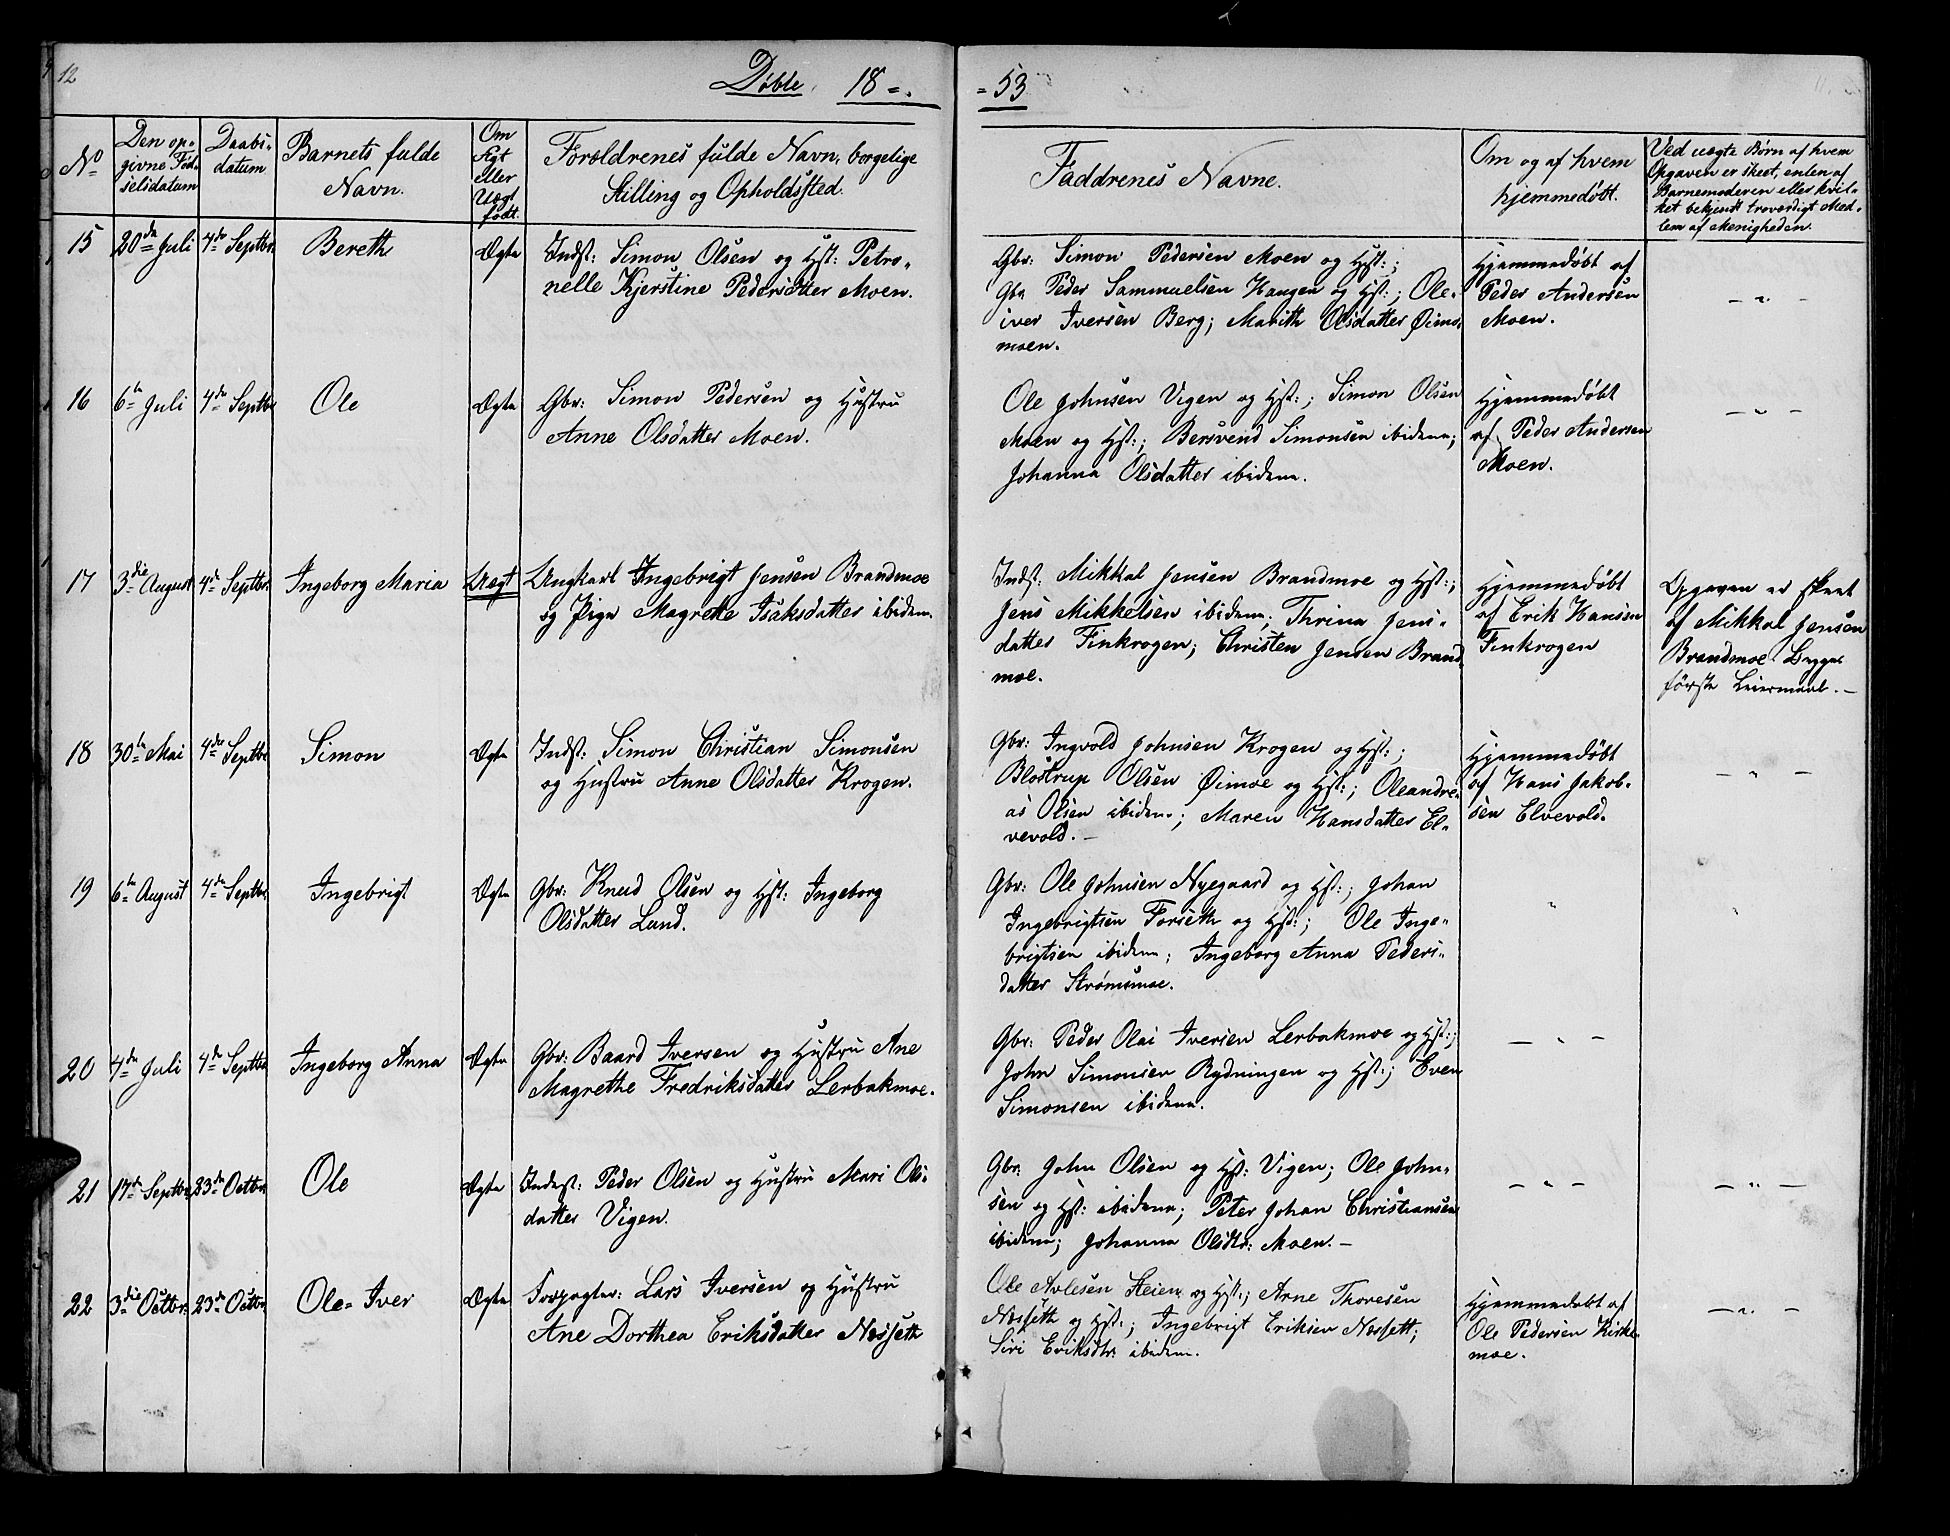 12
Døbte. 18=.
=53
No
Den op-
givne Fød-
selsdatum
Daabs-
datum
Barnets fulde
Navn.
Om
Ægt
eller
Uægt
født.
Forældrenes fulde Navn, borgelige
Stilling og Opholdssted.
Faddrenes Navne.
Om og af hvem
hjemmedøbt.
Ved uægte Børn af hvem
Opgaven er skeet, enten af
Barnemoderen eller hvil-
ket bekjendt troværdigt Med-
lem af Menigheden.
15 20de Juli 4de Septbr. Bereth Ægte Indst: Simon Olsen og Hst: Petro-
nelle Kjerstine Pedersdatter Moen.
Gbr: Simon Pedersen Moen og Hst:;
Gbr Peder Sammuelsen Haugen og Hst:; Ole-
iver Iversen Berg; Marith Olsdatter Øims-
moen.
Hjemmedøbt af
Peder Andersen
Moen.
- " -
16 6te Juli 4de Septbr Ole Ægte Gbr: Simon Pedersen og Hustru
Anne Olsdatter Moen.
Ole Johnsen Vigen og Hst:; Simon Olsen
Moen og Hst:; Bersvend Simonsen ibidem;
Johanna Olsdatter ibidem.
Hjemmedøbt
af Peder Andersen
Moen.
- " -
17 3die August 4de Septbr. Ingeborg Maria Uægt Ungkarl Ingebrigt Jensen Brandmoe
og Pige Magrethe Isaksdatter ibidem.
Indst: Mikkal Jensen Brandmoe og Hst:;
Jens Mikkelsen ibidem; Thrina Jens-
datter Finkrogen; Christen Jensen Brand-
moe.
Hjemmedøbt
af Erik Hansen
Finkrogen
Opgaven er skeet
af Mikkal Jensen
Brandmoe. Begges
første Leiermaal. -
18 30te Mai 4de Septbr Simon Ægte Indst: Simon Christian Simonsen
og Hustru Anne Olsdatter Krogen.
Gbr: Ingvold Johnsen Krogen og Hst:;
Blostrup Olsen Øimoe og Hst:; Oleandre-
as Olsen ibidem; Maren Hansdatter El-
vevold. -
Hjemmedøbt
af Hans Jakob-
sen Elvevold.
- " -
19 6te August 4de Septbr. Ingebrigt Ægte Gbr: Knud Olsen og Hst: Ingeborg
Olsdatter Lund.
Gbr: Ole Johnsen Nyegaard og Hst:; Johan
Ingebrigtsen Forseth og Hst:; Ole Inge-
brigtsen ibidem; Ingeborg Anna Peders-
datter Strømsmoe.
"
"
20 4de Juli 4de Septbr Ingeborg Anna Ægte Gbr: Baard Iversen og Hustru Ane
Magrethe Fredriksdatter Lerbakmoe.
Gbr: Peder Olai Iversen Lerbakmoe og Hst:;
John Simonsen Rydningen og Hst:; Even
Simonsen ibidem.
- " -
21 17de Septbr. 23de Octbr. Ole Ægte Inderst: Peder Olsen og Hustru Mari Ols-
datter Vigen.
Gbr: John Olsen og Hst: Vigen; Ole John-
sen og Hst: ibidem; Peter Johan Christiansen
ibidem; Johanna Olsdtr: Moen. -
- " -
- " -
22 3die Octbr. 23de Octbr. Ole-Iver Ægte Forpagter: Lars Iversen og Hustru
Ane Dorthea Eriksdatter Næsseth
Ole Arlesen Steien og Hst:; Arne Thoresen
Næsseth og Hst:; Ingebrigt Eriksen Næssett;
Siri Eriksdtr: ibidem.
Hjemmedøbt af
Ole Pedersen Kirke-
moe.
- " -